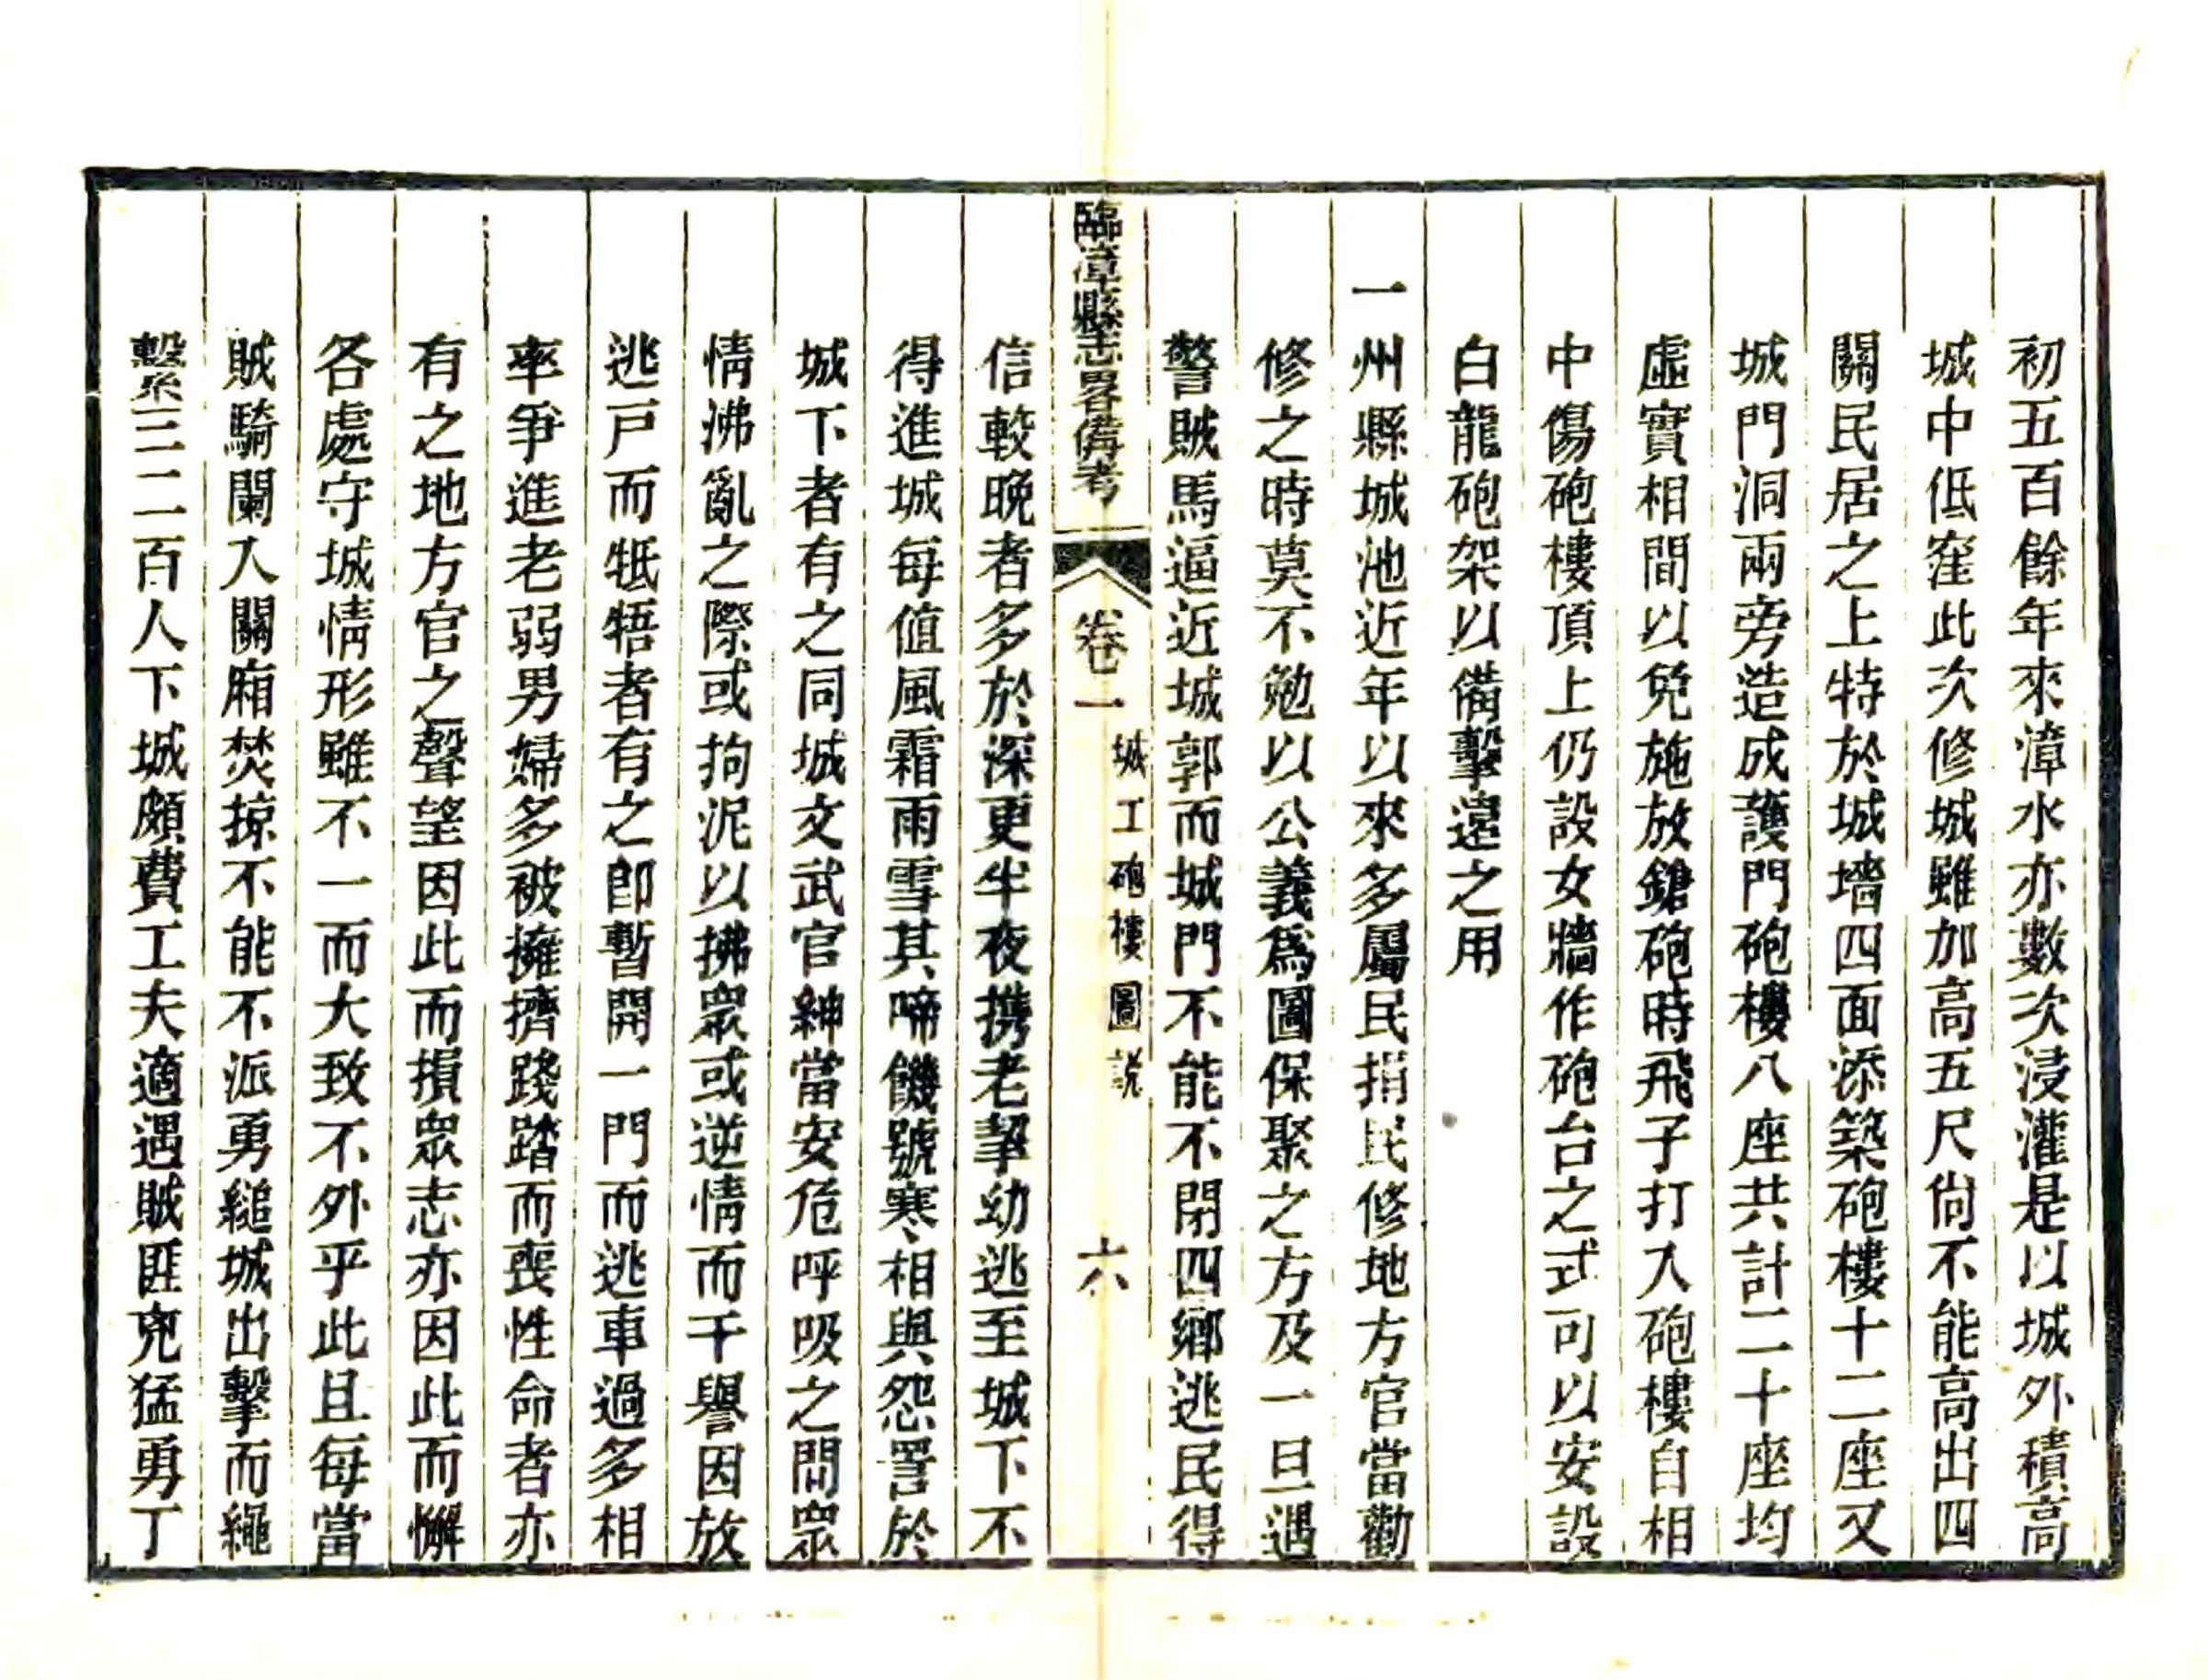 初五百餘年來漳水亦數次浸灌是以城外積高
城中低窪此次修城雖加高五尺尙不能高出四
關民居之上特於城墻四面添築砲樓十二座又
城門洞兩旁造成護門砲樓八座共計二十座均
虛實相間以免施放鎗砲時飛子打入砲樓自相
中傷砲樓頂上仍設女牆作砲台之式可以安設
白龍砲架以備擊遠之用
一州縣城池近年以來多屬民捐民修地方官當勸
修之時莫不勉以公義爲圖保聚之方及一旦遇
警賊馬逼近城郭而城門不能不閉四鄉逃民得
臨漳縣志畧備考
卷一
城工砲樓圖說
六
信較晚者多於深更半夜携老挈幼逃至城下不
得進城每值風霜雨雪其啼饑號寒相與怨詈於
城下者有之同城文武官紳當安危呼吸之間眾
情沸亂之際或拘泥以拂眾或逆情而干譽因放
逃戸而牴牾者有之卽暫開一門而逃車過多相
率爭進老弱男婦多被擁擠踐踏而喪性命者亦
有之地方官之聲望因此而損眾志亦因此而懈
各處守城情形雖不一而大致不外乎此且每當
賊騎闌入關廂焚掠不能不派勇縋城出擊而繩
繫三二百人下城頗費工夫適遇賊匪兇猛勇丁